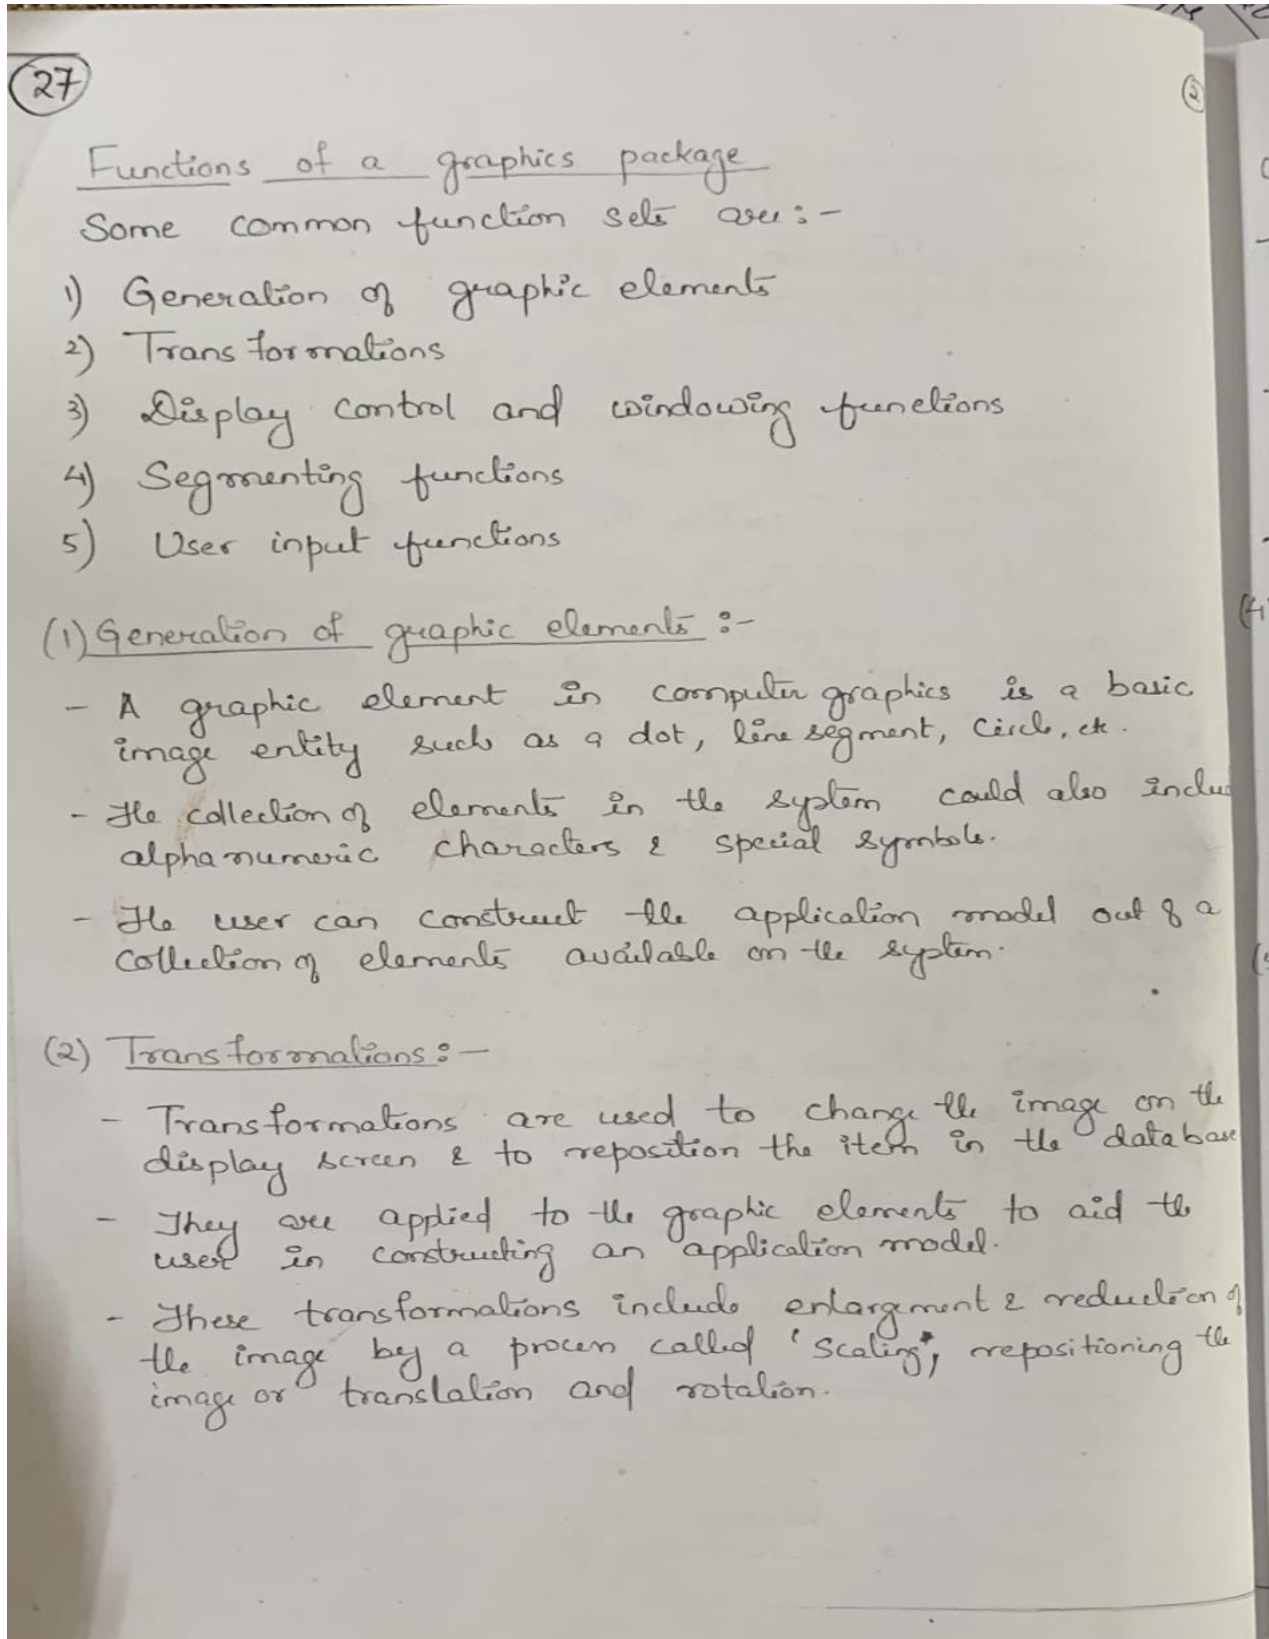 27
2
Functions of a graphics package
Some common function sets are:-
1) Generation of graphic elements
2) Transformations
3) Display control and windowing functions
4) Segmenting functions
5) User input functions
(1) Generation of graphic elements :-
- A graphic element in computer graphics is a basic
image entity such as a dot, line segment, circle, etc.
- The collection of elements in the system could also includ
alphanumeric characters & special symbols.
- The user can construct the application model out of a
collection of elements available on the system.
(2) Transformations:-
- Transformations are used to change the image on the
display screen & to reposition the item in the database
- They are applied to the graphic elements to aid the
user in constructing an application model.
- These transformations include enlargement & reduction of
the image by a process called 'Scaling', repositioning the
image or translation and rotation.